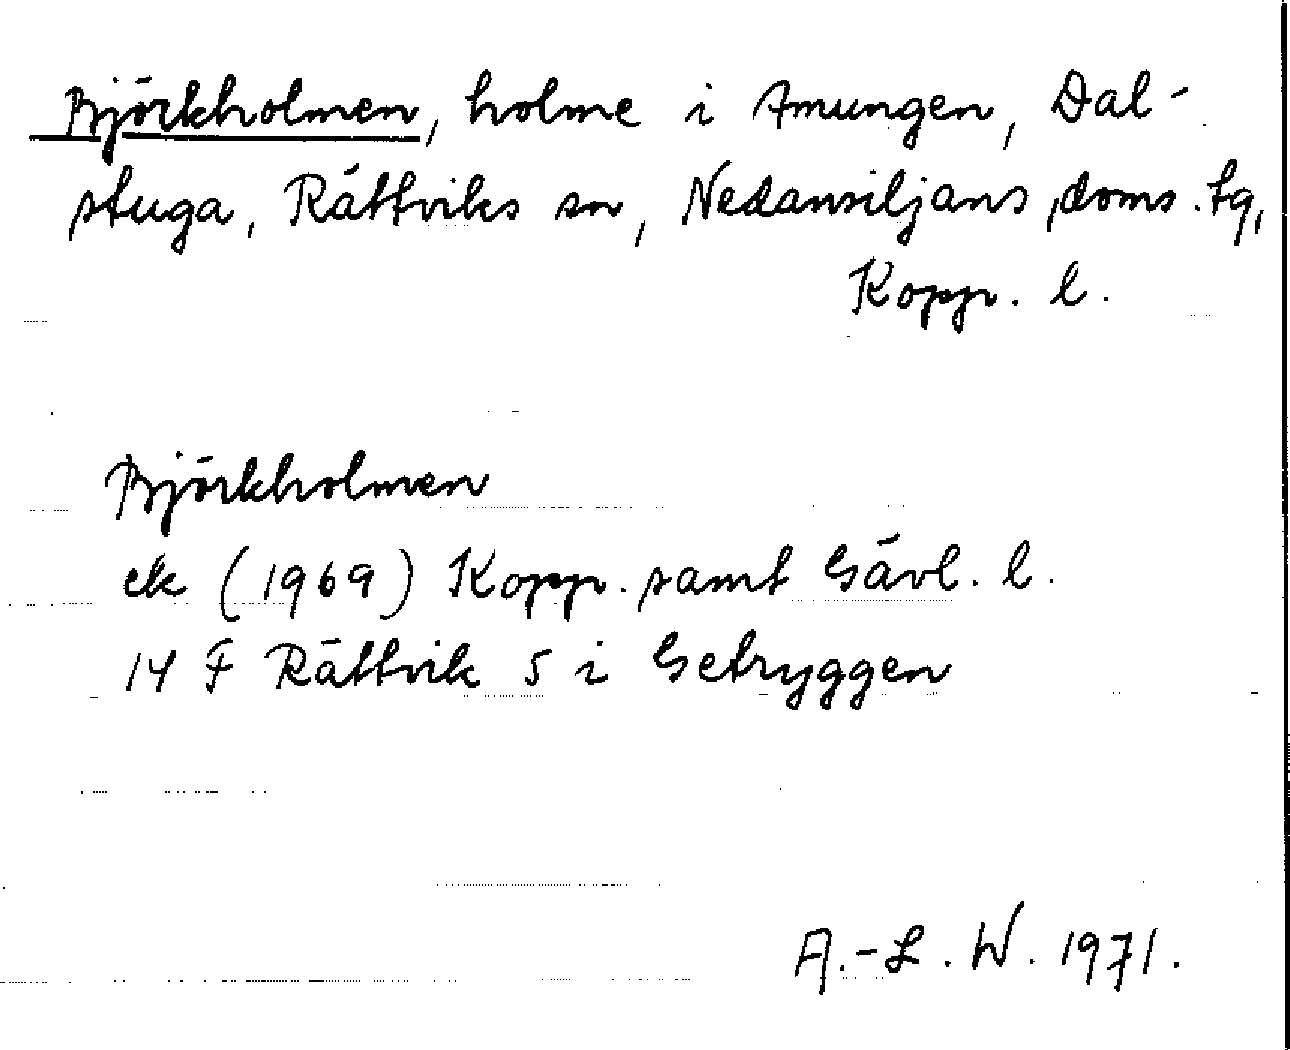 Björkholmen, holme i Amungen, Dal-
stuga, Rättviks sn, Nedansiljans doms. tg,
Kopp. l.
Björkholmen
ek (1969) Kopp. samt Gävl. l.
14 F Rättvik 5 i Getryggen
A.-L. W. 1971.